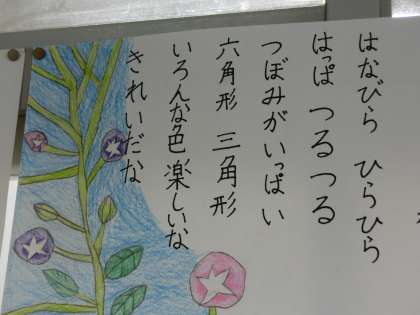 はなびら ひらひら
はっぱ つるつる
つぼみがいっぱい
六角形 三角形
いろんな色楽しいな
きれいだな